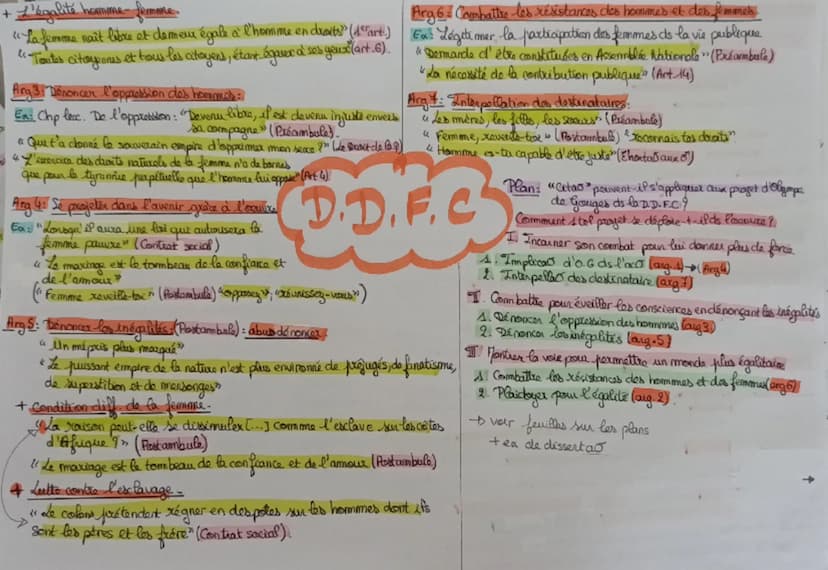 + L'égalité homme-femme
"La femme naît libre et demeure égale à l'homme en droits" (1er art.)
"Toutes citoyennes et tous les citoyens, étant égaux à ses yeux" (art.6).
Arg 3: Dénoncer l'oppression des hommes:
Ex: Chp lex. De l'oppression: "Devenu libre, il est devenu injuste envers
sa compagne" (Préambule)
"Qui t'a donné le souverain empire d'opprimer mon sexe?"
"L'exercice des droits naturels de la femme n'a de bornes
que par la tyrannie perpétuelle que l'homme lui oppose" (Art 4)
Arg 4: Se projeter dans l'avenir grâce à l'écriture
Ex: "Lorsqu'il aura une loi qui autorisera la
femme pauvre" (Contrat social)
"Le mariage est le tombeau de la confiance et
de l'amour"
("Femme réveille-toi" (Postambule) "opposez", "réunissez-vous")
Arg 5: Dénoncer les inégalités: (Postambule): abus dénoncer
"Un mépris plus marqué"
"Le puissant empire de la nature n'est plus environné de préjugés, de fanatisme,
de superstition et de mensonges"
+ Condition diff. de la femme.
"La raison peut-elle se dissimuler [...] comme l'esclave sur les côtes
d'Afrique?" (Postambule)
"Le mariage est le tombeau de la confiance et de l'amour (Postambule)
+ Lutte contre l'esclavage.
"Le colons prétendent régner en despotes sur les hommes dont ils
sont les pères et les frère" (Contrat social).
D.D.F.C
Arg 6: Combattre les résistances des hommes et des femmes
Ex: Légitimer la participation des femmes ds la vie publique
"Demande d'être constituées en Assemblée Nationale" (Préambule)
"La nécessité de la contribution publique" (Art. 14)
Arg 7: Interpellation des destinataires:
"Les mères, les filles, les sœurs" (Préambule)
"Femme, réveille-toi" (Postambule) "reconnais tes droits"
"Homme es-tu capable d'être juste"
Plan: peuvent-il s'appliquer aux projet d'Olympe
de Gouges ds la D.D.F.C?
Comment s tel projet se déploie-t-il ds l'œuvre?
I. Incarner son combat pour lui donner plus de force
1. d'O.G ds l' (arg.1) → (Arg 4)
2. des destinataire (arg 7)
II. Combattre pour éveiller les consciences en dénonçant les inégalités
1. Dénoncer l'oppression des hommes (arg 3)
2. Dénoncer les inégalités (arg.5)
III. Montrer la voie pour permettre un monde plus égalitaire
1. Combattre les résistances des hommes et des femmes (arg 6)
2. Plaidoyer pour l'égalité (arg.2)
→ voir feuilles sur les plans
+ ex de